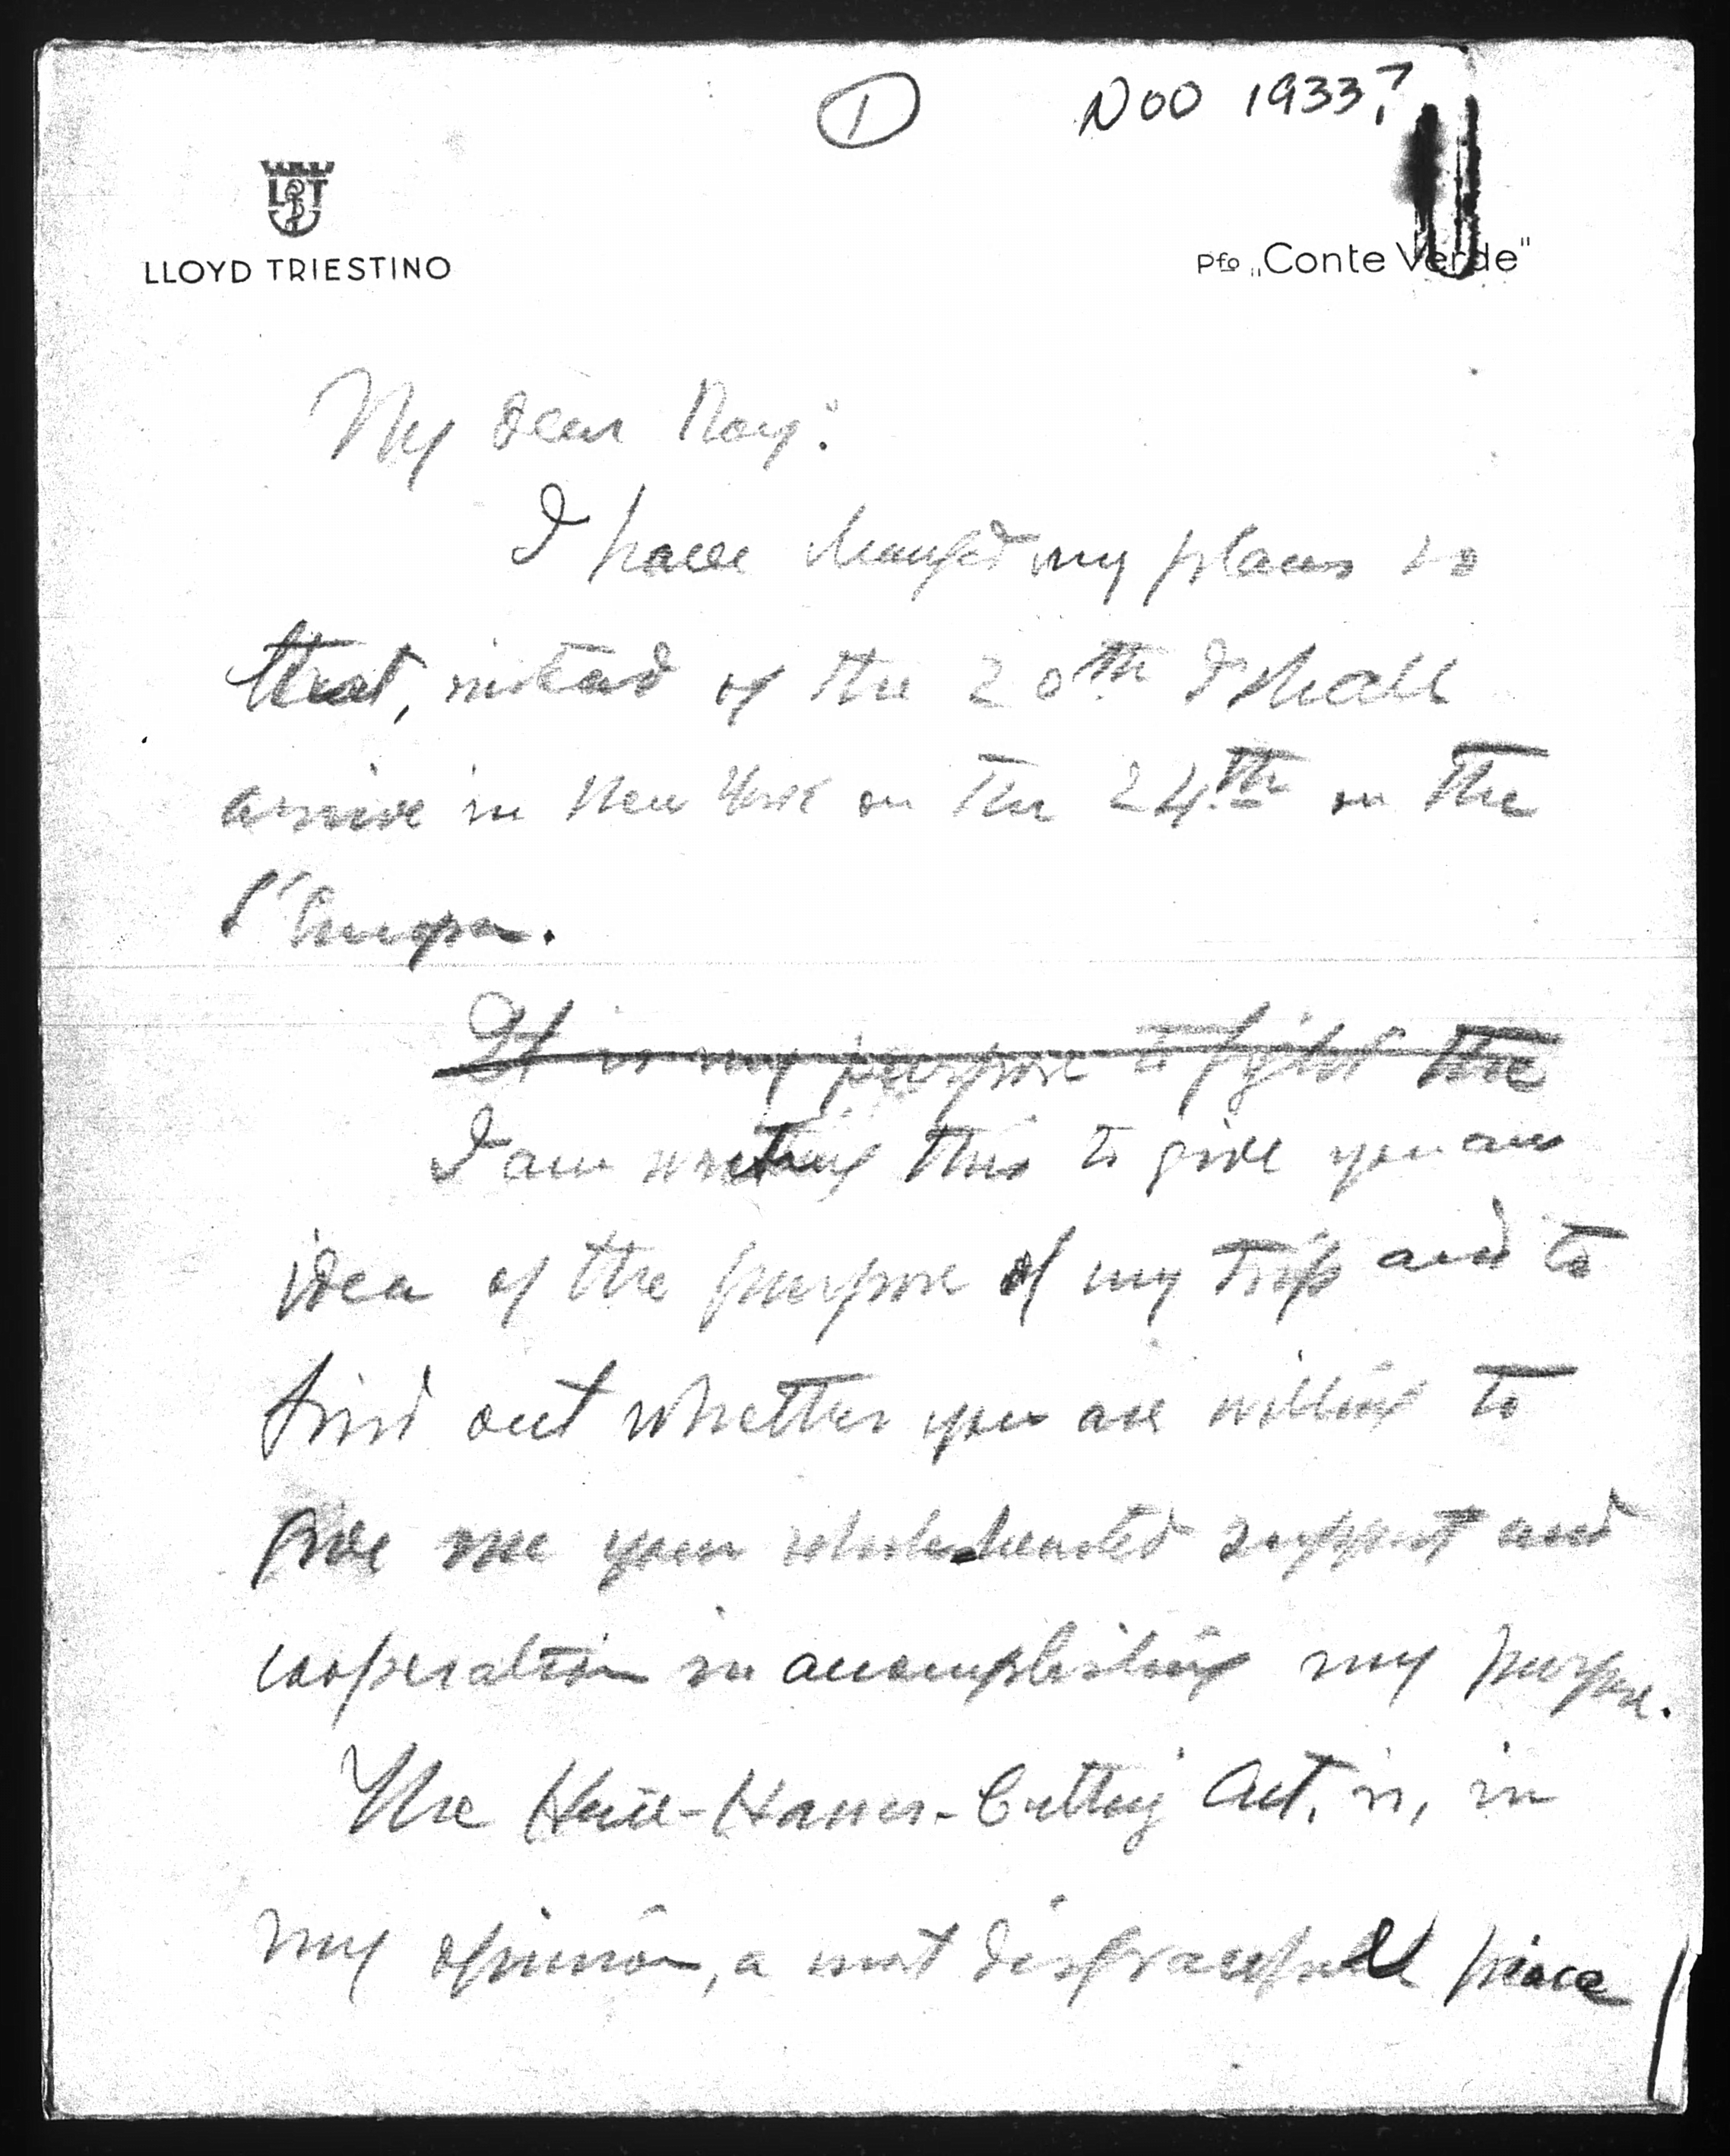 1
Nov 1933?
LLOYD TRIESTINO
Pfo „Conte Verde"
My dear Roy:
I have changed my plans so
that, instead of the 20th I shall
arrive in New York on the 24th on the
S/ Europa.
It is my purpose to fight the
I am writing this to give you an
idea of the purpose of my trip and to
find out whether you are willing to
give me your whole-hearted support and
cooperation in accomplishing my purpose.
The Hare-Hawes-Cutting Act, is, in
my opinion, a most disgraceful piece